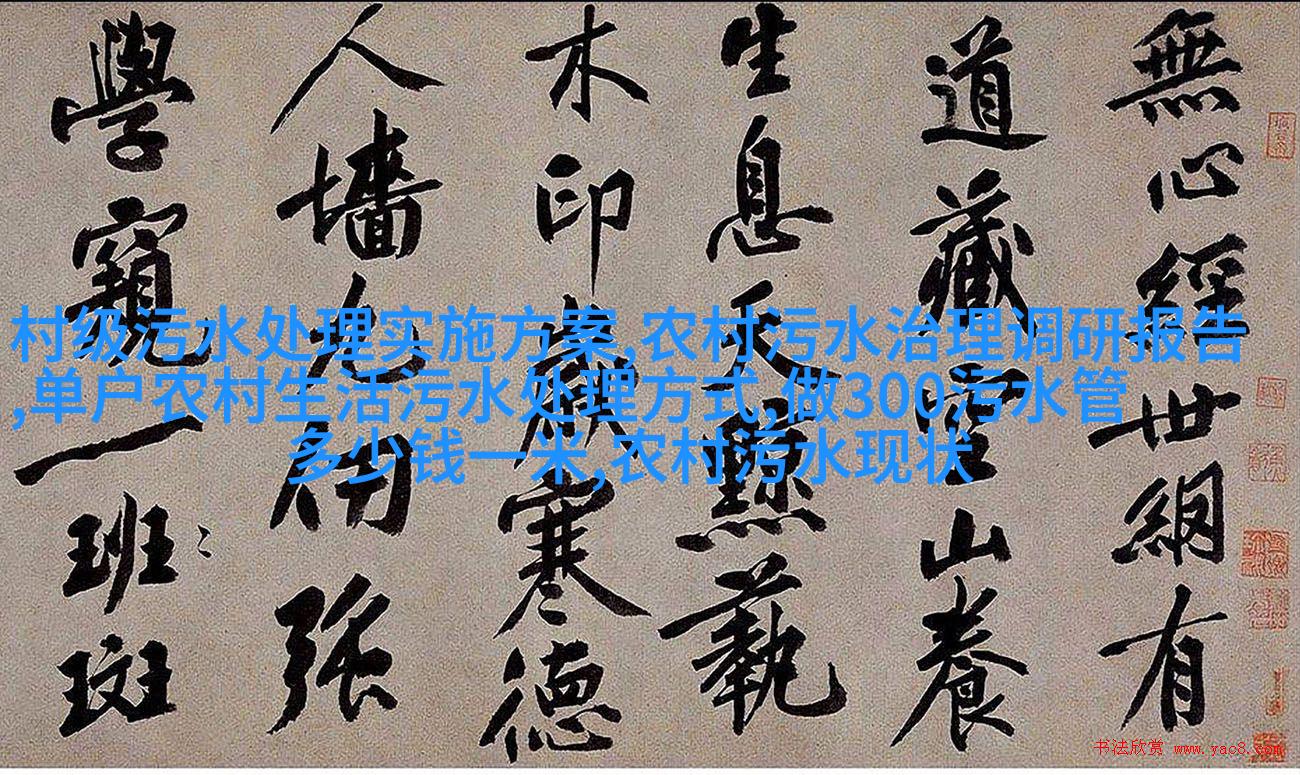 無心經世網有
道藏山養
生息天黥藝
木印歲寒德
人墻九仞強
學窺一班斑
村级污水处理实施方案,农村污水治理调研报告
,单户农村生活污水处理方式,做300污水管
多少钱一米,农村污水现状
书法欣赏 www.yac8.com